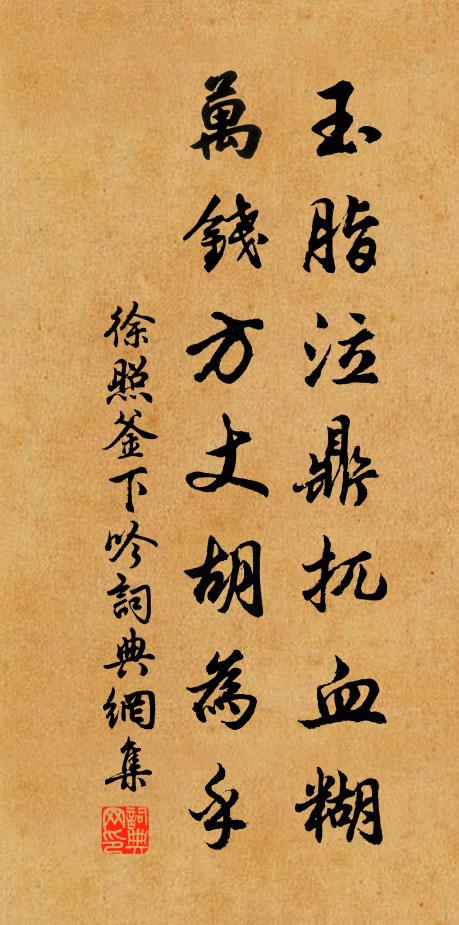 玉脂泣鼎扤血糊
萬錢方丈胡為乎
徐照釜下吟詞典網集
詞典网印